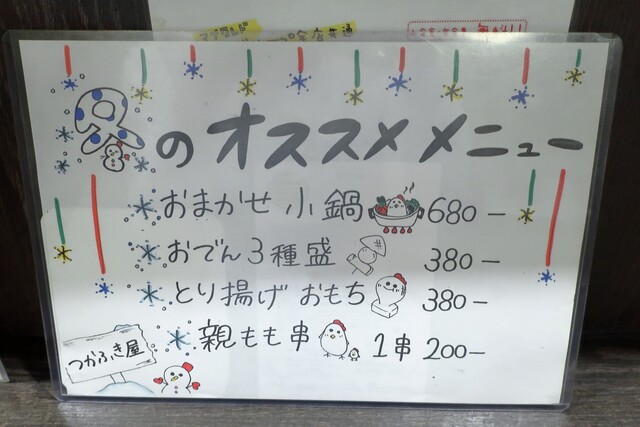 冬のオススメメニュー
おまかせ小鍋 680-
おでん3種盛 380-
とり揚げおもち 380-
親もも串 1串 200-
つかふき屋